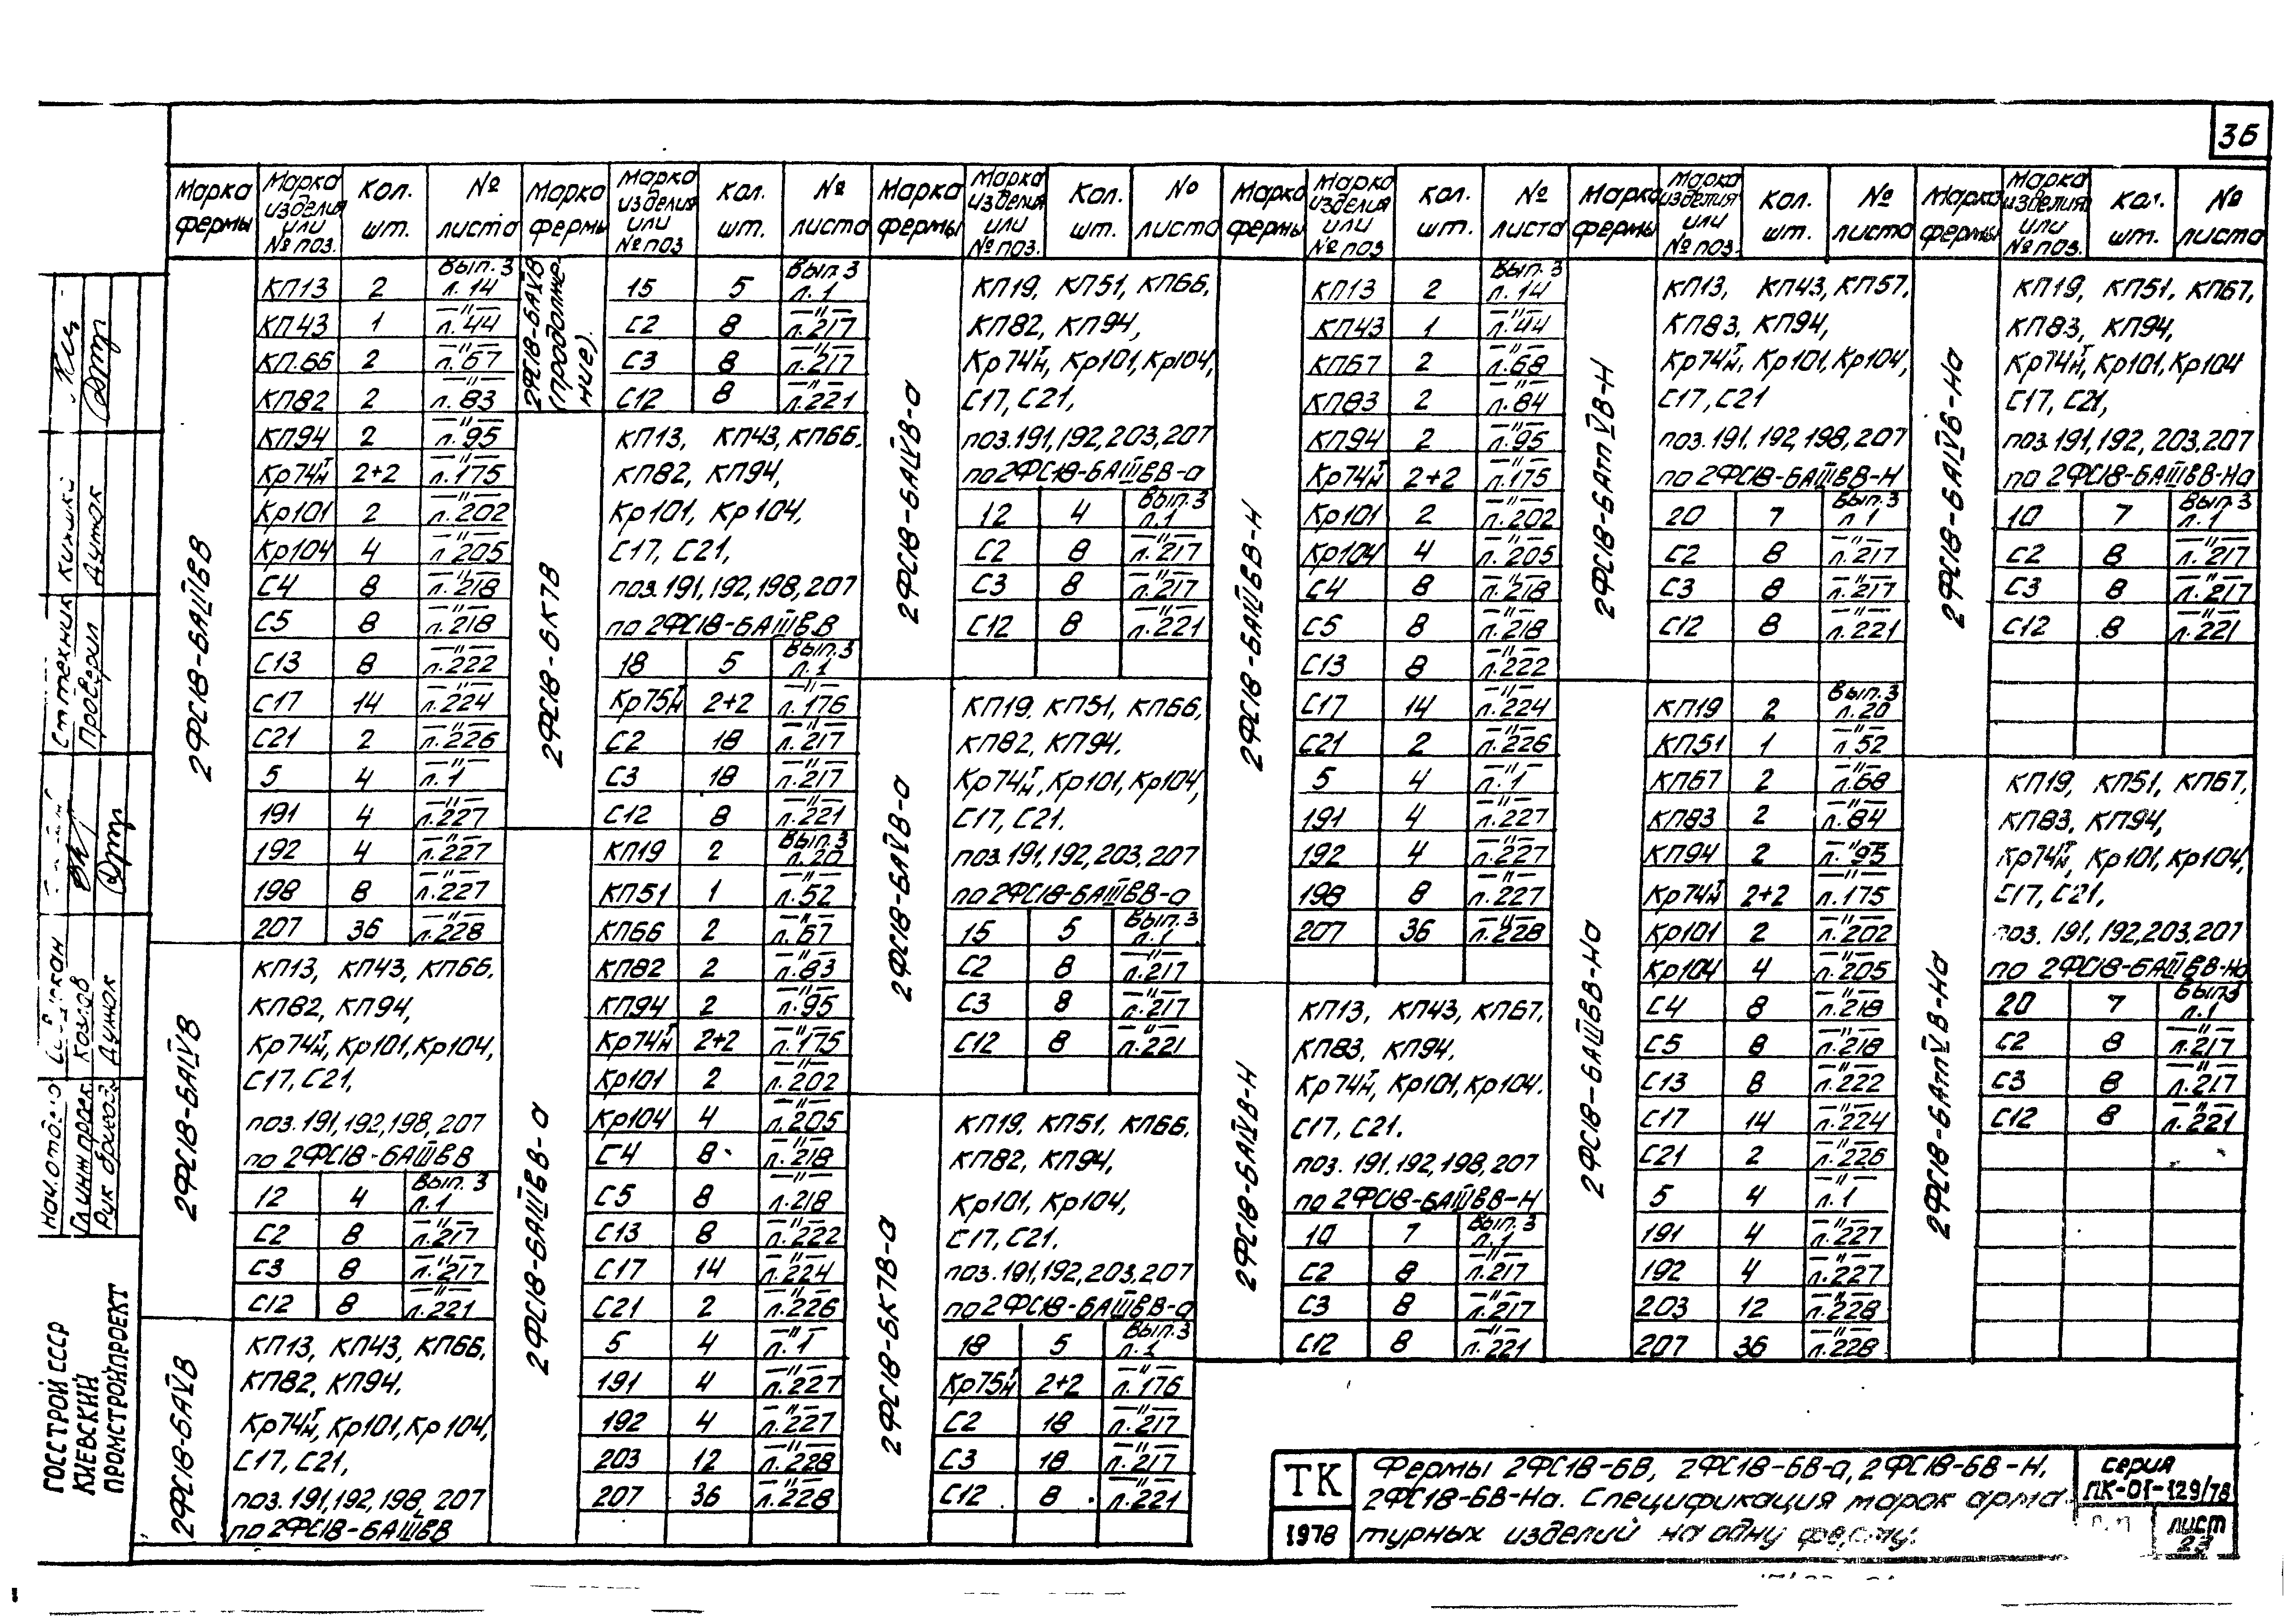 36
Марка фермы | Марка изделия или № поз. | Кол. шт. | № листа
2ФС18-6АШвВ
КП13 2 Вып. 3 л. 14
КП43 1 —"— л. 44
КП.66 2 —"— л. 67
КП82 2 —"— л. 83
КП94 2 —"— л. 95
Кр74н 2+2 —"— л. 175
Кр101 2 —"— л. 202
Кр104 4 —"— л. 205
С4 8 —"— л. 218
С5 8 —"— л. 218
С13 8 —"— л. 222
С17 14 —"— л. 224
С21 2 —"— л. 226
5 4 —"— л. 1
191 4 —"— л. 227
192 4 —"— л. 227
198 8 —"— л. 227
207 36 —"— л. 228
2ФС18-6АIVВ
КП13, КП43, КП66,
КП82, КП94,
Кр74н, Кр101, Кр104,
С17, С21,
поз. 191, 192, 198, 207
по 2ФС18-6АШвВ
12 4 Вып. 3 л. 1
С2 8 —"— л. 217
С3 8 —"— л. 217
С12 8 —"— л. 221
2ФС18-6АVВ
КП13, КП43, КП66,
КП82, КП94,
Кр74н, Кр101, Кр104,
С17, С21,
поз. 191, 192, 198, 207
по 2ФС18-6АШвВ
Марка фермы | Марка изделия или № поз | Кол. шт. | № листа
2ФС18-6АVВ (продолжение).
15 5 Вып. 3 л. 1
С2 8 —"— л. 217
С3 8 —"— л. 217
С12 8 —"— л. 221
2ФС18-6К7В
КП13, КП43, КП66.
КП82, КП94,
Кр101, Кр104,
С17, С21,
поз. 191, 192, 198, 207
по 2ФС18-6АШвВ
18 5 Вып. 3 л. 1
Кр75н 2+2 —"— л. 176
С2 18 —"— л. 217
С3 18 —"— л. 217
С12 8 —"— л. 221
2ФС18-6АШвВ-а
КП19 2 Вып. 3 л. 20
КП51 1 —"— л. 52
КП66 2 —"— л. 67
КП82 2 —"— л. 83
КП94 2 —"— л. 95
Кр74н 2+2 —"— л. 175
Кр101 2 —"— л. 202
Кр104 4 —"— л. 205
С4 8 —"— л. 218
С5 8 —"— л. 218
С13 8 —"— л. 222
С17 14 —"— л. 224
С21 2 —"— л. 226
5 4 —"— л. 1
191 4 —"— л. 227
192 4 —"— л. 227
203 12 —"— л. 228
207 36 —"— л. 228
Марка фермы | Марка изделия или № поз. | Кол. шт. | № листа
2ФС18-6АIVВ-а
КП19, КП51, КП66,
КП82, КП94,
Кр74н, Кр101, Кр104,
С17, С21,
поз. 191, 192, 203, 207
по 2ФС18-6АШвВ-а
12 4 Вып. 3 л. 1
С2 8 —"— л. 217
С3 8 —"— л. 217
С12 8 —"— л. 221
2ФС18-6АVВ-а
КП19, КП51, КП66,
КП82, КП94.
Кр74н, Кр101, Кр104,
С17, С21.
поз. 191, 192, 203, 207
по 2ФС18-6АШвВ-а
15 5 Вып. 3 л. 1
С2 8 —"— л. 217
С3 8 —"— л. 217
С12 8 —"— л. 221
2ФС18-6К7В-а
КП19, КП51, КП66.
КП82, КП94,
Кр101, Кр104,
С17, С21.
поз. 191, 192, 203, 207
по 2ФС18-6АШвВ-а
18 5 Вып. 3 л. 1
Кр75н 2+2 —"— л. 176
С2 18 —"— л. 217
С3 18 —"— л. 217
С12 8 —"— л. 221
Марка фермы | Марка изделия или № поз | Кол. шт. | № листа
2ФС18-6АШвВ-Н
КП13 2 Вып. 3 л. 14
КП43 1 —"— л. 44
КП67 2 —"— л. 68
КП83 2 —"— л. 84
КП94 2 —"— л. 95
Кр74н 2+2 —"— л. 175
Кр101 2 —"— л. 202
Кр104 4 —"— л. 205
С4 8 —"— л. 218
С5 8 —"— л. 218
С13 8 —"— л. 222
С17 14 —"— л. 224
С21 2 —"— л. 226
5 4 —"— л. 1
191 4 —"— л. 227
192 4 —"— л. 227
198 8 —"— л. 227
207 36 —"— л. 228
2ФС18-6АIVВ-Н
КП13, КП43, КП67,
КП83, КП94.
Кр74н, Кр101, Кр104.
С17, С21.
поз. 191, 192, 198, 207
по 2ФС18-6АШвВ-Н
10 7 Вып. 3 л. 1
С2 8 —"— л. 217
С3 8 —"— л. 217
С12 8 —"— л. 221
Марка фермы | Марка изделия или № поз. | Кол. шт. | № листа
2ФС18-6АтVВ-Н
КП13, КП43, КП67,
КП83, КП94,
Кр74н, Кр101, Кр104,
С17, С21
поз. 191, 192, 198, 207
по 2ФС18-6АШвВ-Н
20 7 Вып. 3 л 1
С2 8 —"— л. 217
С3 8 —"— л. 217
С12 8 —"— л. 221
2ФС18-6АШвВ-На
КП19 2 Вып. 3 л. 20
КП51 1 —"— л 52
КП67 2 —"— л. 68
КП83 2 —"— л. 84
КП94 2 —"— л. 95
Кр74н 2+2 —"— л. 175
Кр101 2 —"— л. 202
Кр104 4 —"— л. 205
С4 8 —"— л. 218
С5 8 —"— л. 218
С13 8 —"— л. 222
С17 14 —"— л. 224
С21 2 —"— л. 226
5 4 —"— л. 1
191 4 —"— л. 227
192 4 —"— л. 227
203 12 —"— л. 228
207 36 —"— л. 228
Марка фермы | Марка изделия или № поз. | Кол. шт. | № листа
2ФС18-6АIVВ-На
КП19, КП51, КП67,
КП83, КП94,
Кр74н, Кр101, Кр104
С17, С21,
поз. 191, 192, 203, 207
по 2ФС18-6АШвВ-На
10 7 Вып. 3 л. 1
С2 8 —"— л. 217
С3 8 —"— л. 217
С12 8 —"— л. 221
2ФС18-6АтVВ-На
КП19, КП51, КП67,
КП83, КП94,
Кр74н, Кр101, Кр104,
С17, С21,
поз. 191, 192, 203, 207
по 2ФС18-6АШвВ-На
20 7 Вып. 3 л. 1
С2 8 —"— л. 217
С3 8 —"— л. 217
С12 8 —"— л. 221
Ст техник Кишки
Проверил Дуток
Нач. отд.
Гл инж проек. Козлов
Рук бригад. Дуток
ГОССТРОЙ СССР
КИЕВСКИЙ
ПРОМСТРОЙПРОЕКТ
ТК
1978
Фермы 2ФС18-6В, 2ФС18-6В-а, 2ФС18-6В-Н,
2ФС18-6В-На. Спецификация марок арма-
турных изделий на одну ферму.
серия
ПК-01-129/78
лист
23